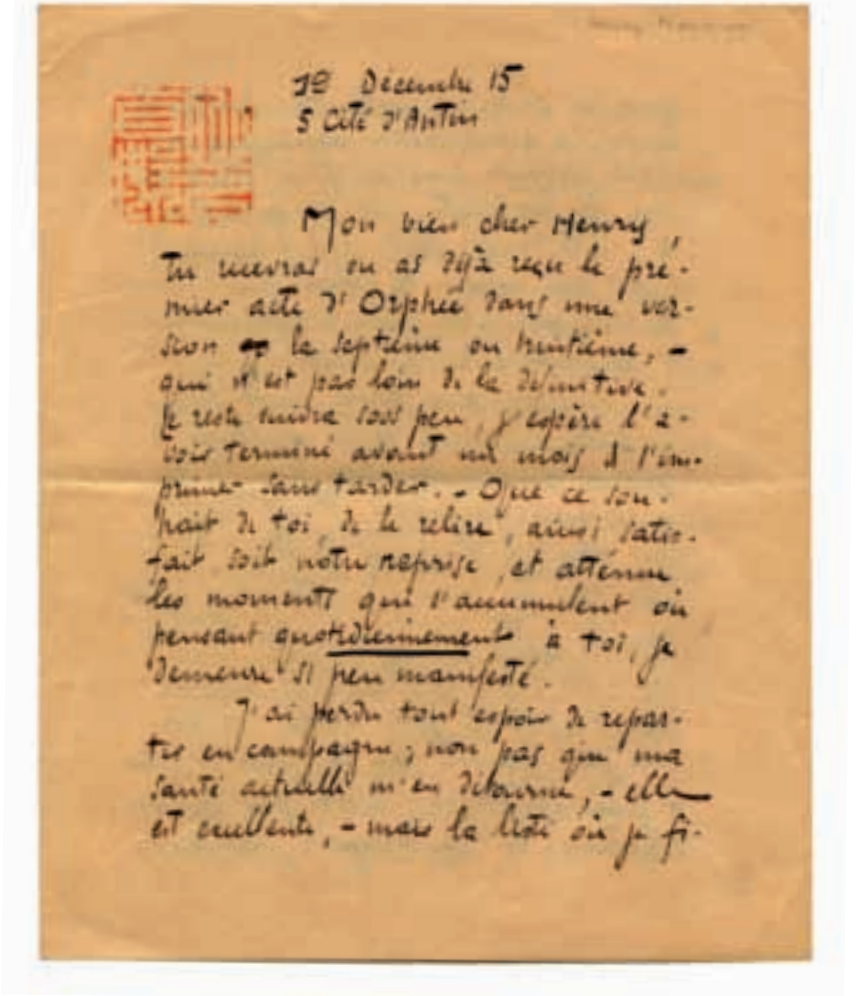 19 Décembre 15
5 Cité d'Antin
Mon bien cher Henry,
Tu recevras ou as déjà reçu le pre-
mier acte d'Orphée dans une ver-
sion la septième ou huitième, -
qui n'est pas loin de la définitive.
Le reste suivra sous peu, j'espère l'a-
voir terminé avant un mois & l'im-
primer sans tarder. - Que ce sou-
hait de toi, de le relire, ainsi satis-
fait soit notre reprise, et atténue
les moments qui s'accumulent où
pensant quotidiennement à toi, je
demeure si peu manifesté.
J'ai perdu tout espoir de repar-
tir en campagne ; non pas que ma
santé actuelle m'en détourne, - elle
est excellente, - mais la liste où je fi-